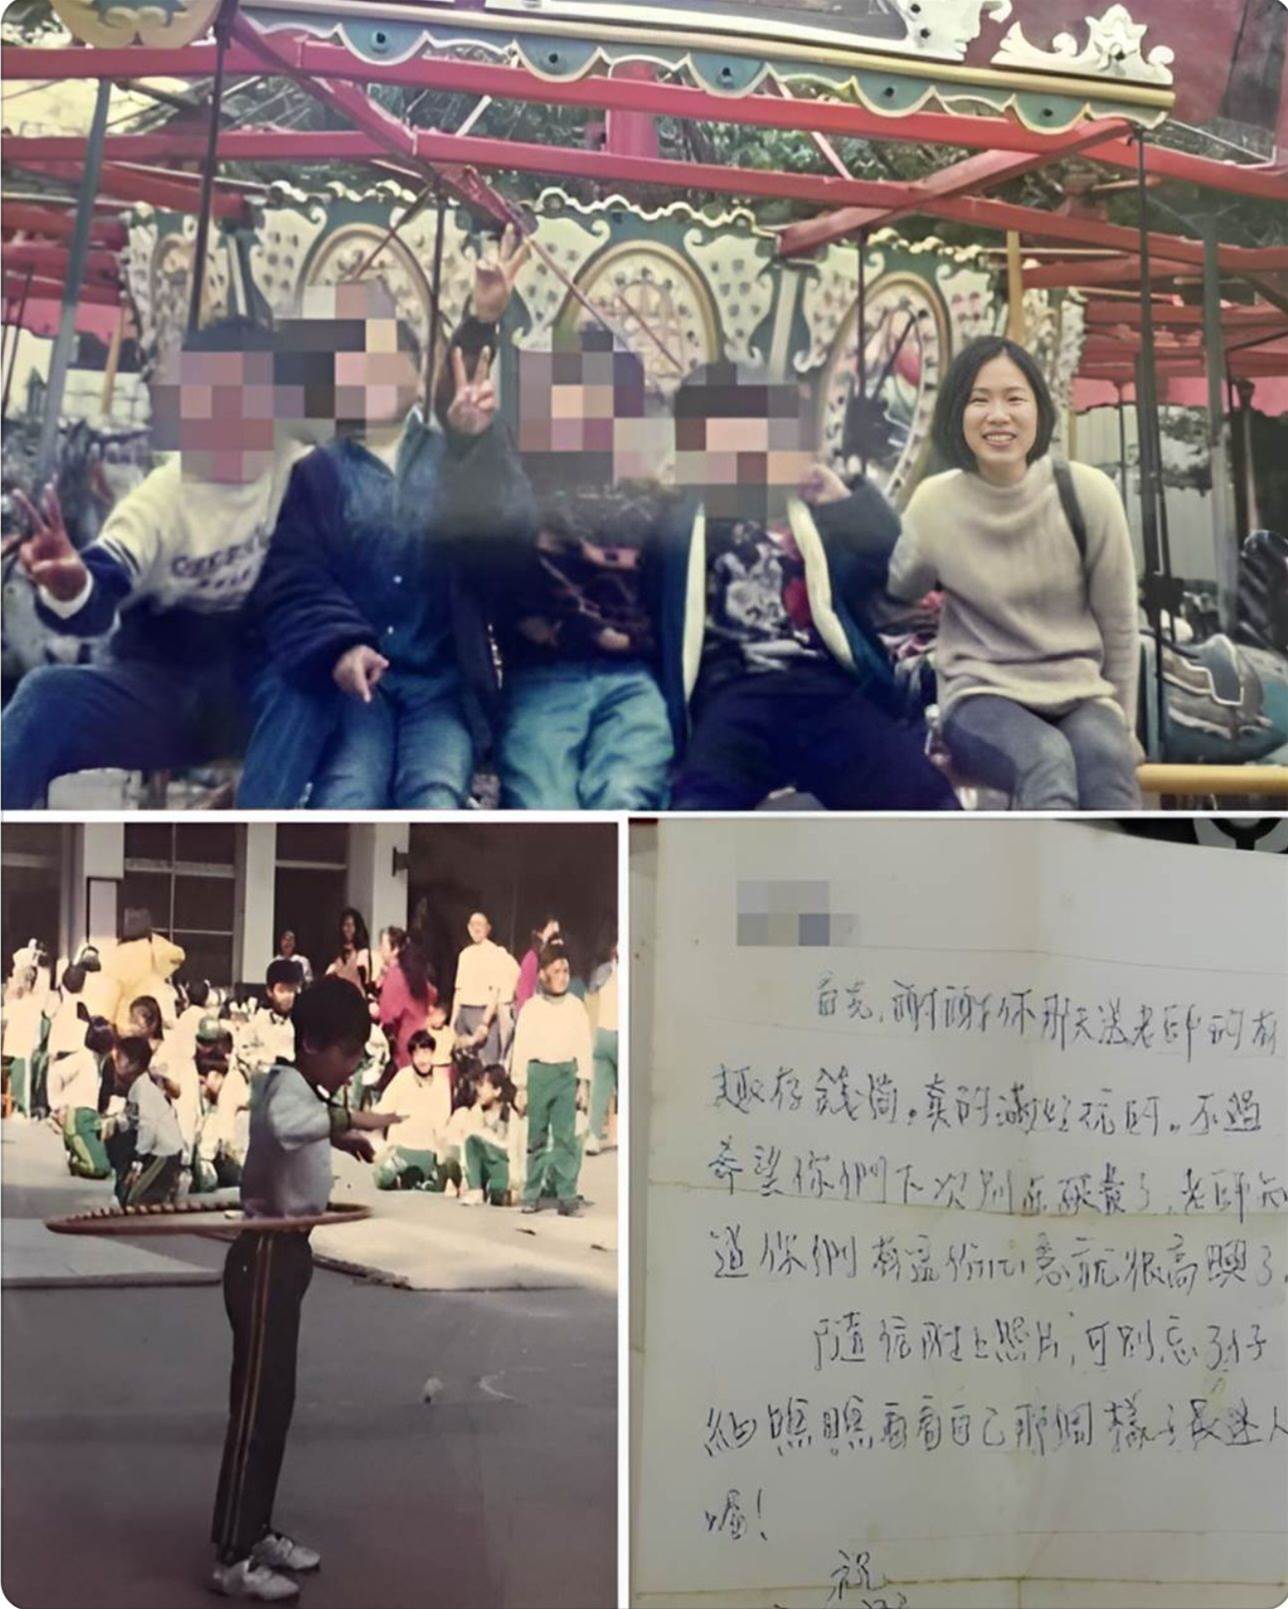 首先,謝謝你那天送老師的有
趣存錢筒。真的滿好玩的。不過
希望你們下次別再破費了,老師知
道你們有這份心意就很高興了。
隨信附上照片,可別忘了仔
細瞧瞧看看自己那個樣子最迷人
喔!
祝